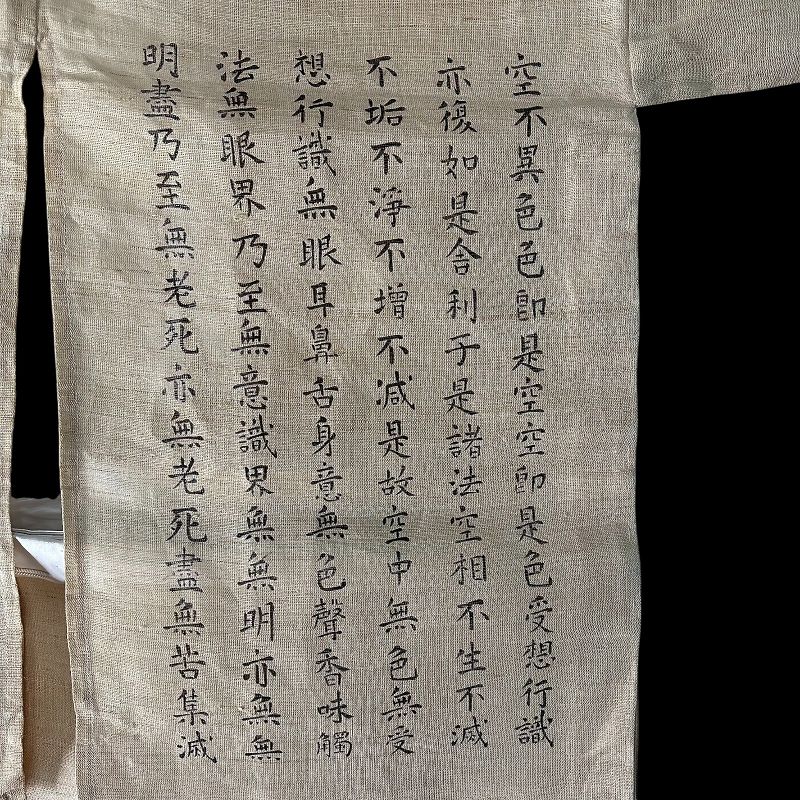 空不異色色即是空空即是色受想行識
亦復如是舍利于是諸法空相不生不滅
不垢不淨不增不減是故空中無色無受
想行識無眼耳鼻舌身意無色聲香味觸
法無眼界乃至無意識界無無明亦無無
明盡乃至無老死亦無老死盡無苦集滅